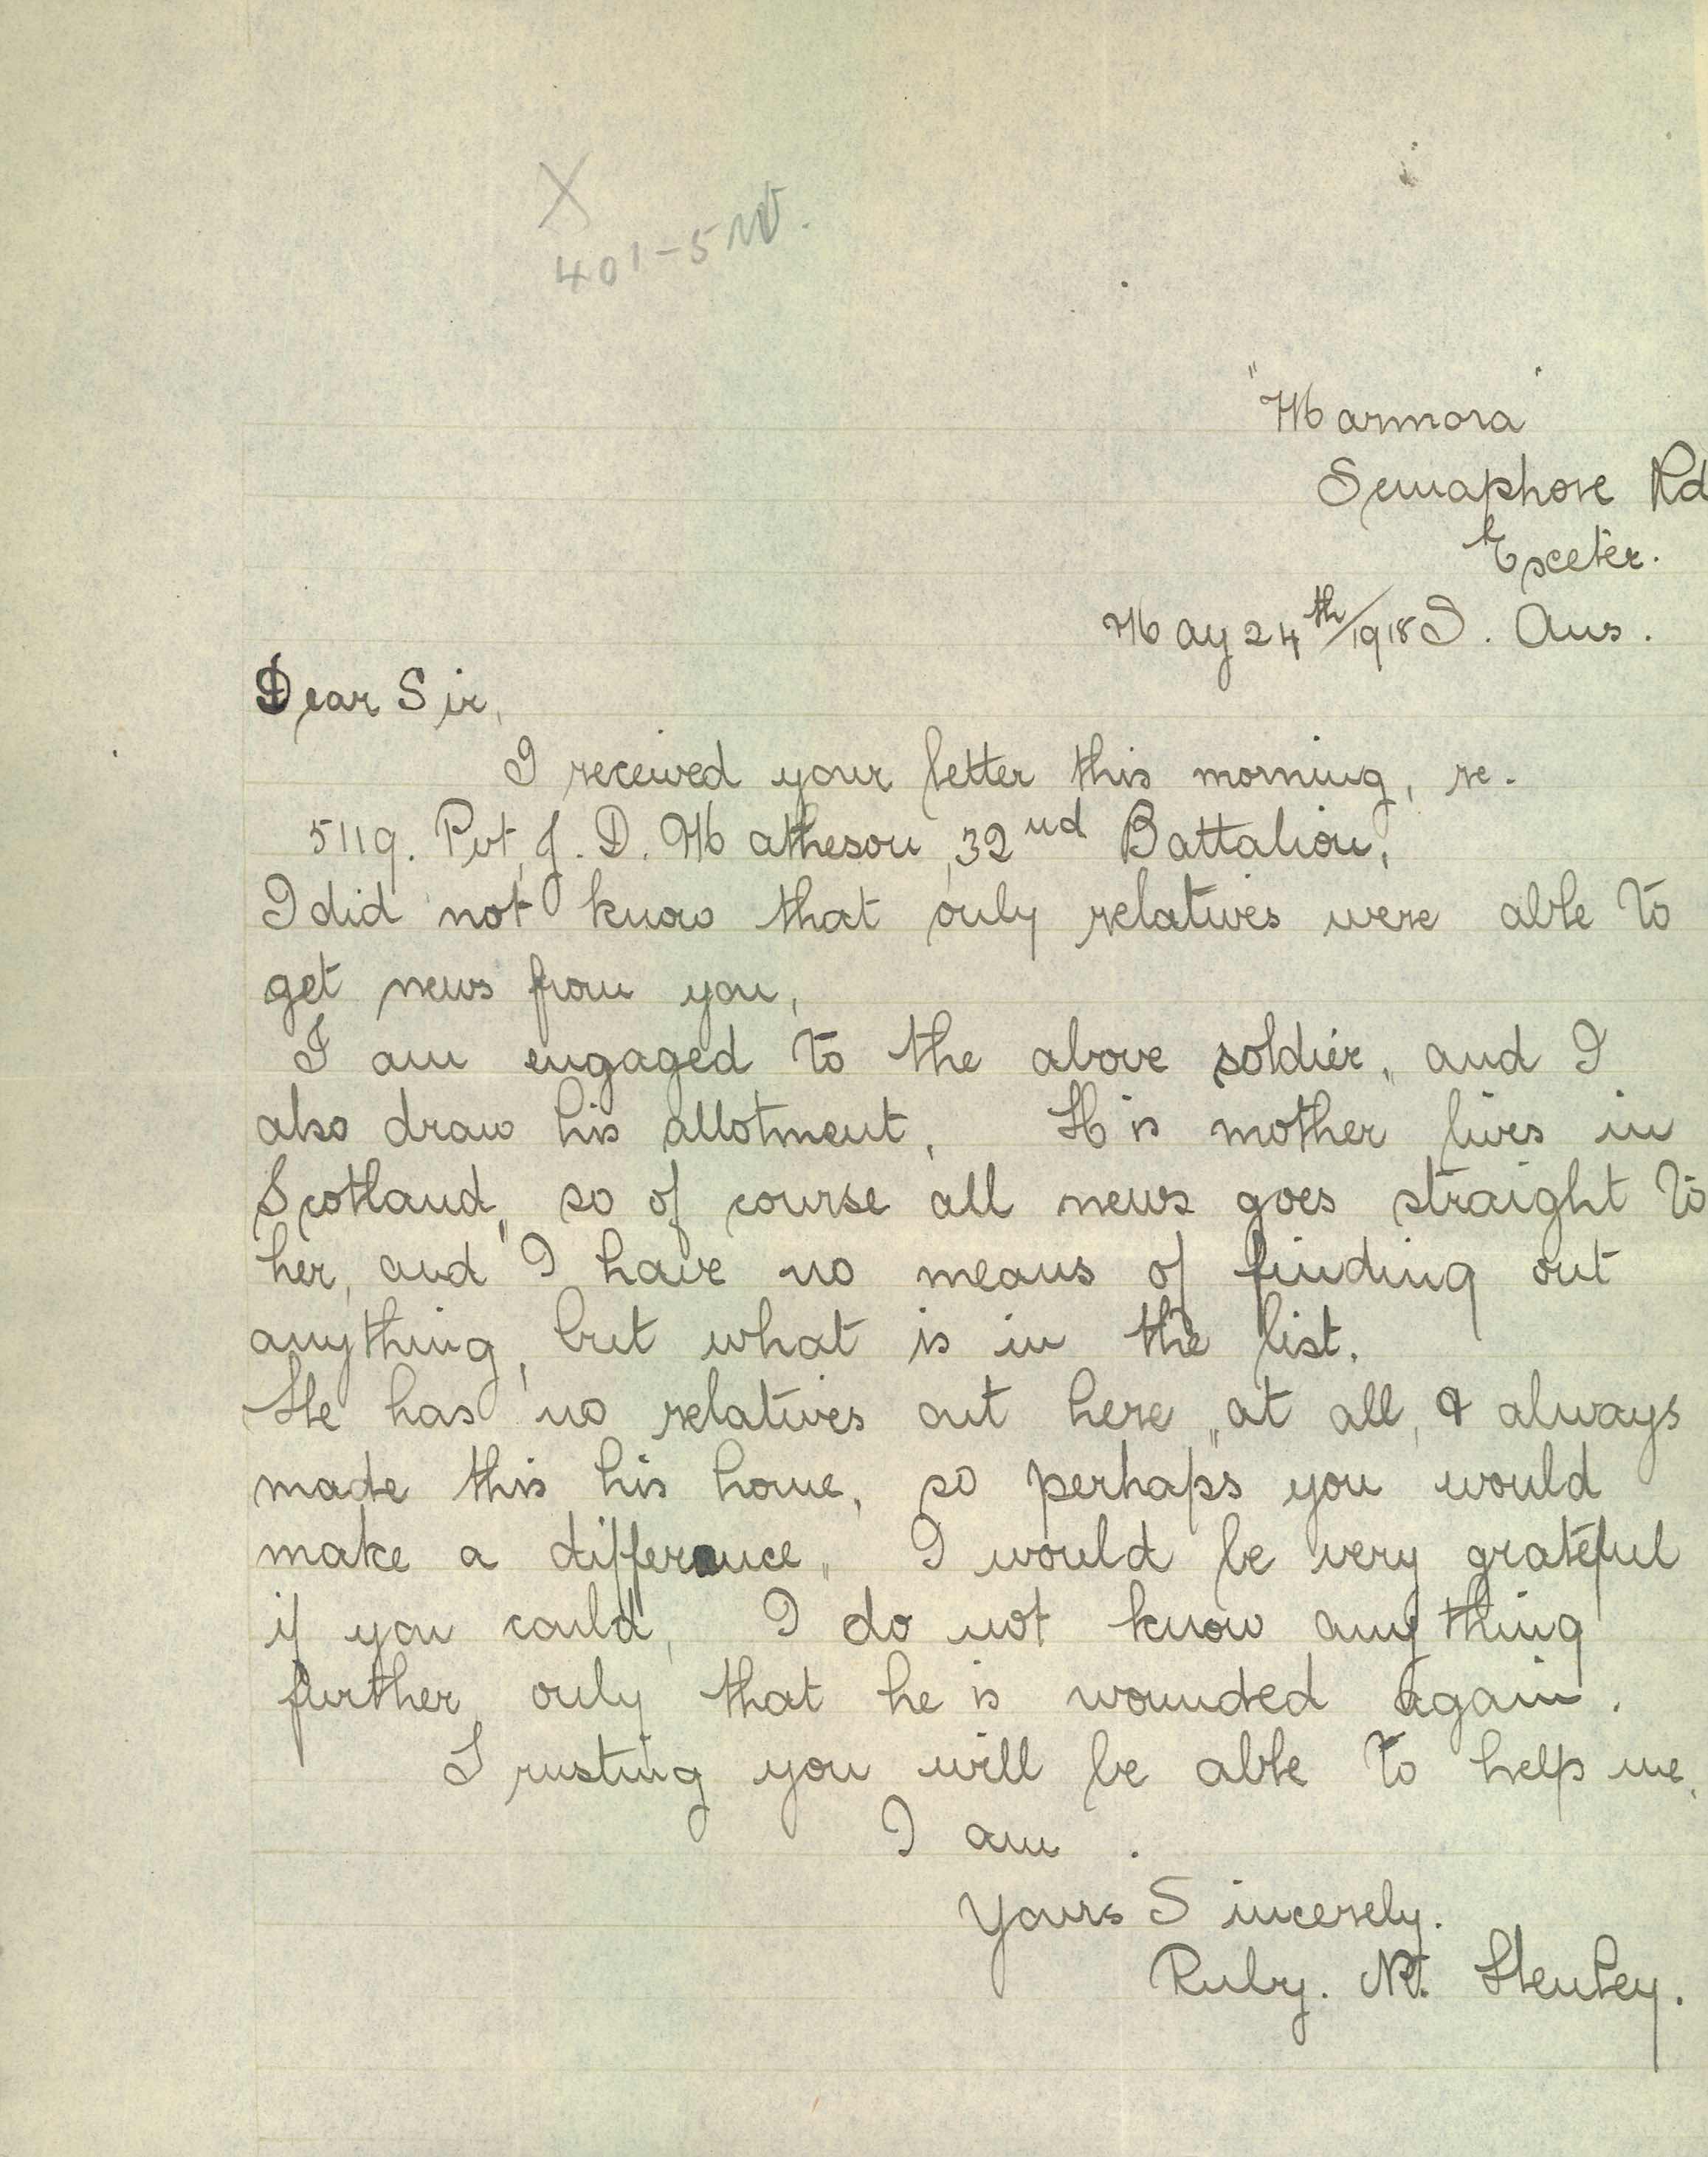 X
401-5
"Marmora"
Semaphore Rd
Exeter.
May 24th/1918 S. Aus.
Dear Sir,
I received your letter this morning, re.
5119. Pvt, J. D. Matheson, 32nd Battalion,
I did not know that only relatives were able to
get news from you,
I am engaged to the above soldier, and I
also draw his allotment. His mother lives in
Scotland, so of course all news goes straight to
her, and I have no means of finding out
anything, but what is in the list.
He has no relatives out here, at all, & always
made this his home, so perhaps you would
make a difference, I would be very grateful
if you could, I do not know anything
further only that he is wounded again.
Trusting you will be able to help me,
I am.
Yours Sincerely.
Ruby. M. Henley.